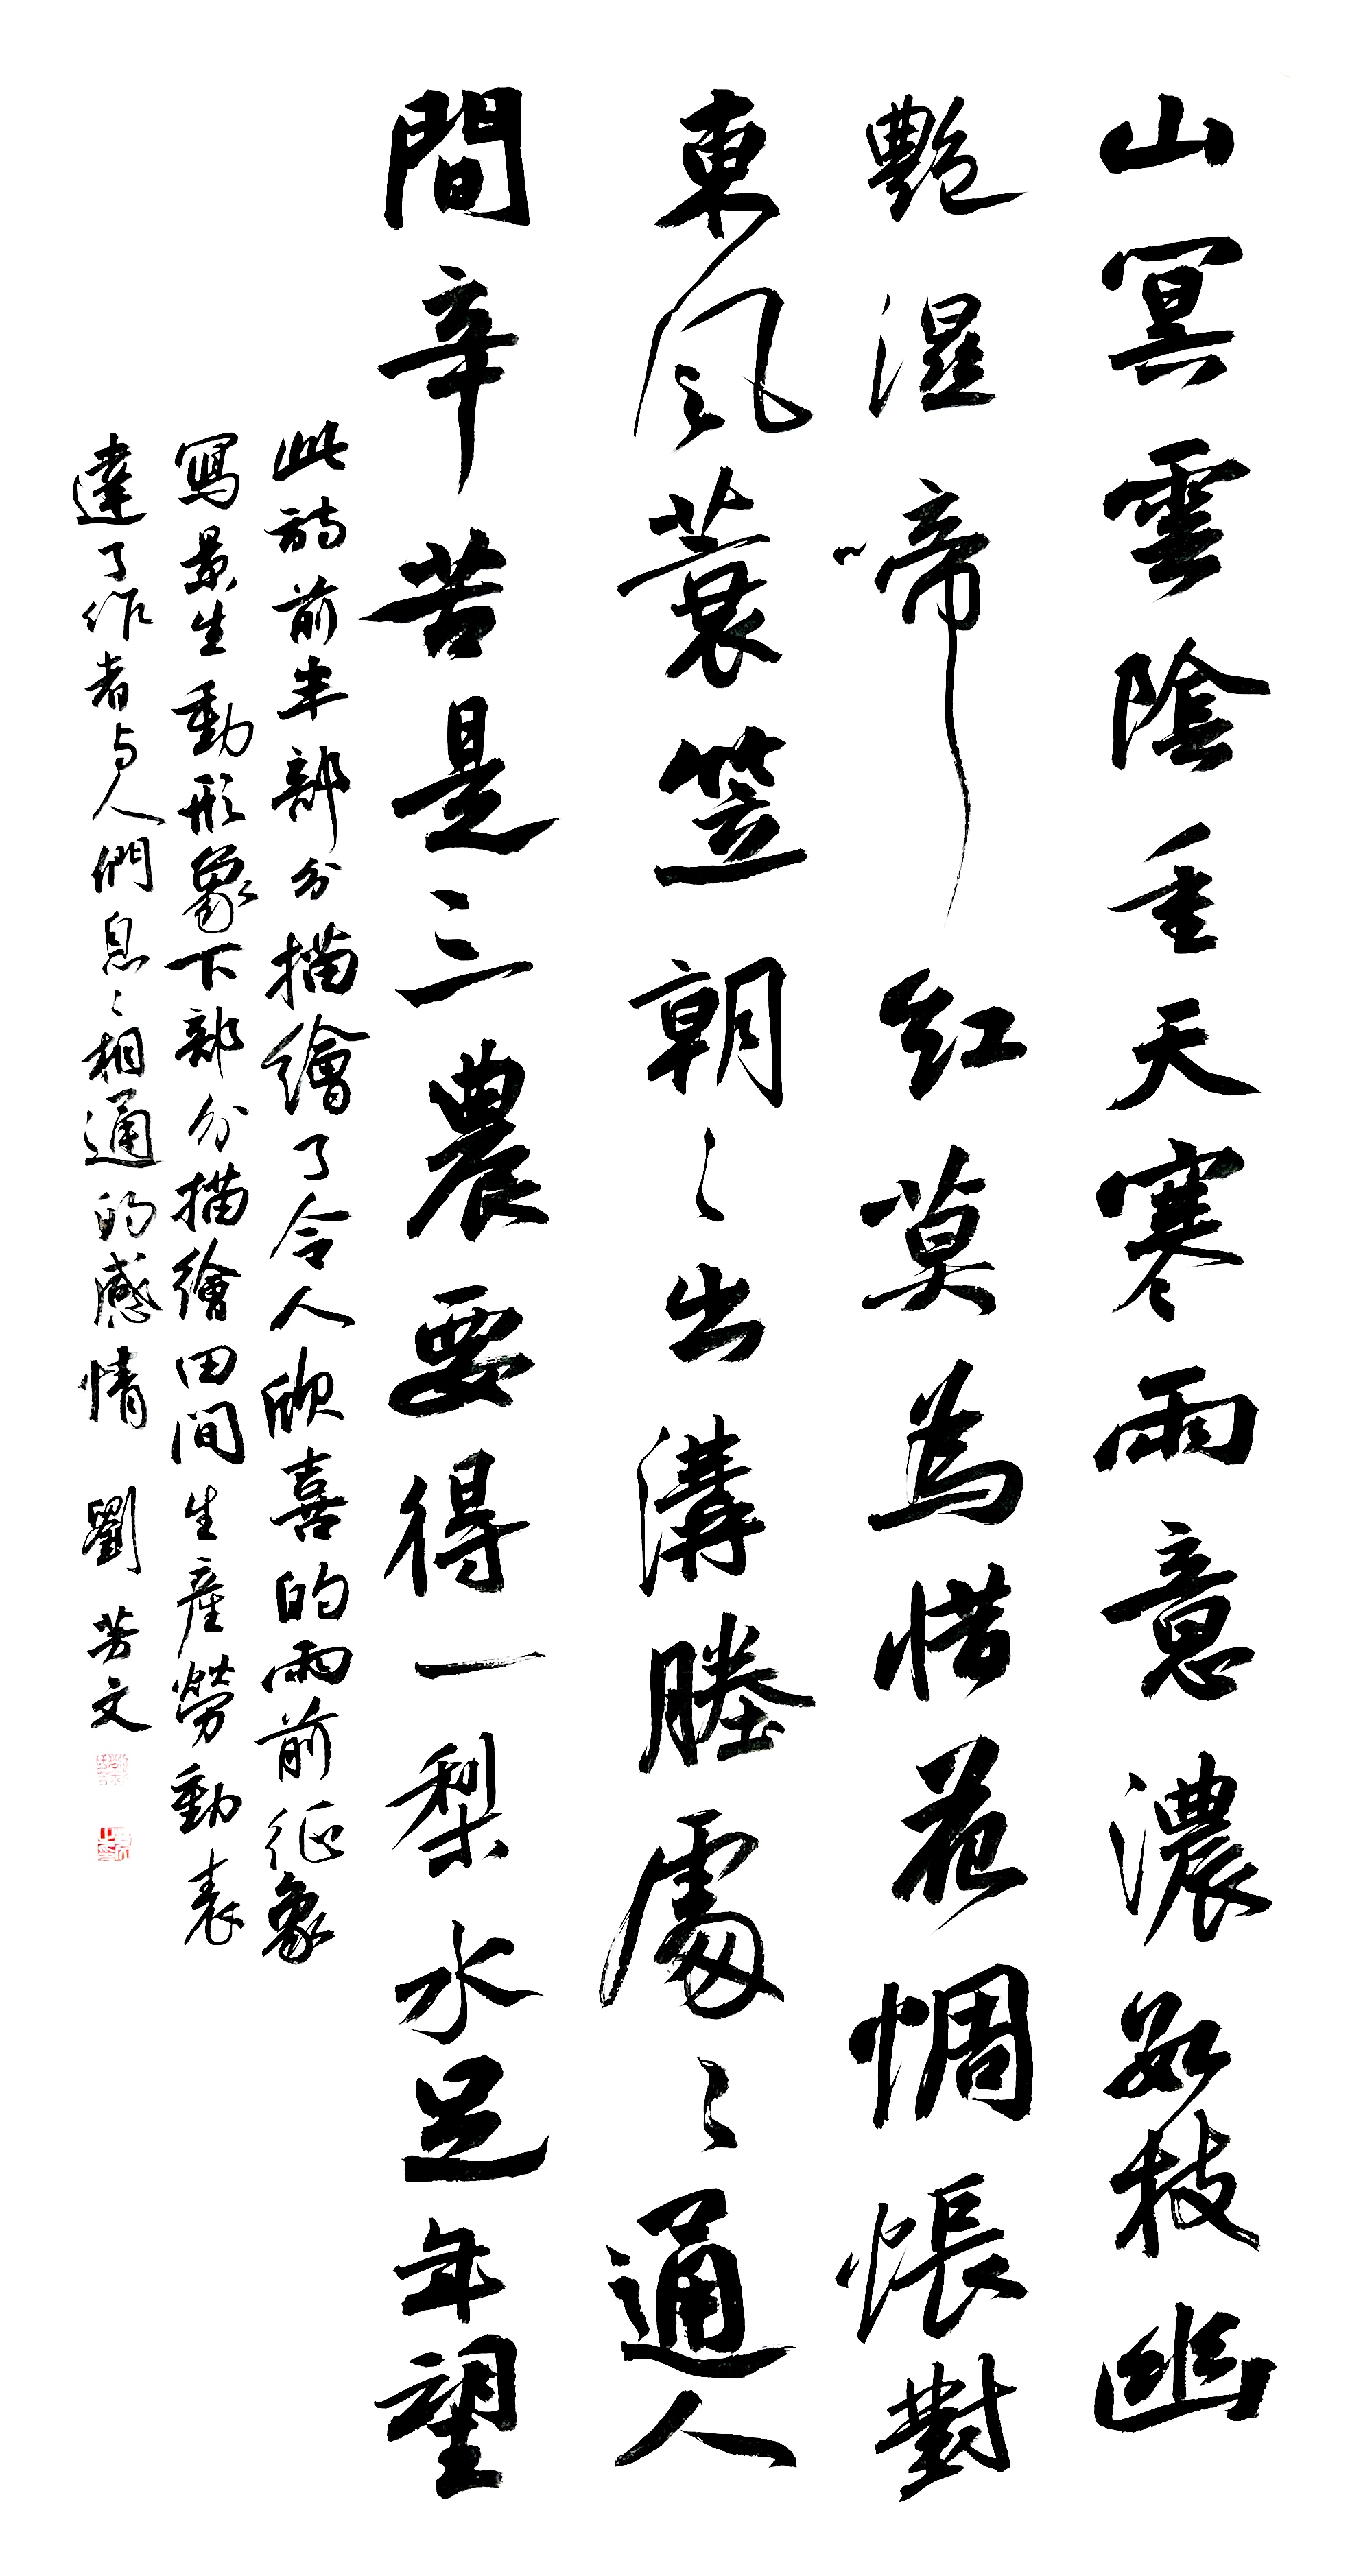 山冥雲陰重天寒雨意濃數枝幽
艷濕啼紅莫為惜花惆悵對
東風蓑笠朝々出溝塍處々通人
間辛苦是三農要得一犁水足年望
此詩前半部分描繪了令人欣喜的雨前征象
寫景生動形象下部分描繪田间生產勞動表
達了作者与人們息々相通的感情 劉芳文